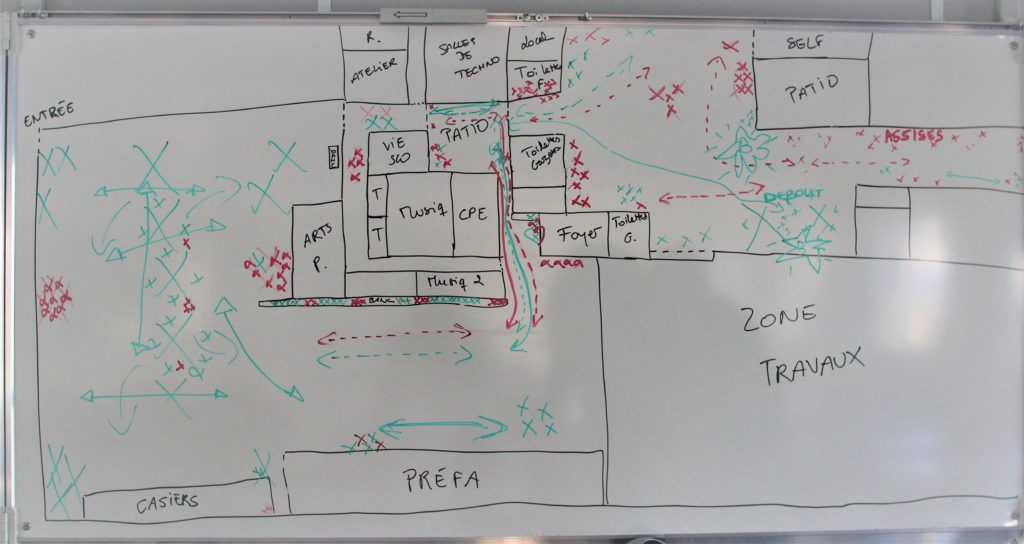 R.
ATELIER
SALLES
DE
TECHNO
LOCAL
Toilettes
F.
SELF
PATIO
ENTRÉE
PATIO
VIE
SCO
Toilettes
Garçons
ASSISES
T
T
Musiq
CPE
DEBOUT
ARTS
P.
Foyer
Toilettes
G.
Musiq 2
BANC
ZONE
TRAVAUX
PRÉFA
CASIERS